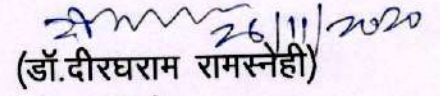 26/11/2020
(डॉ.दीरघराम रामस्नेही)